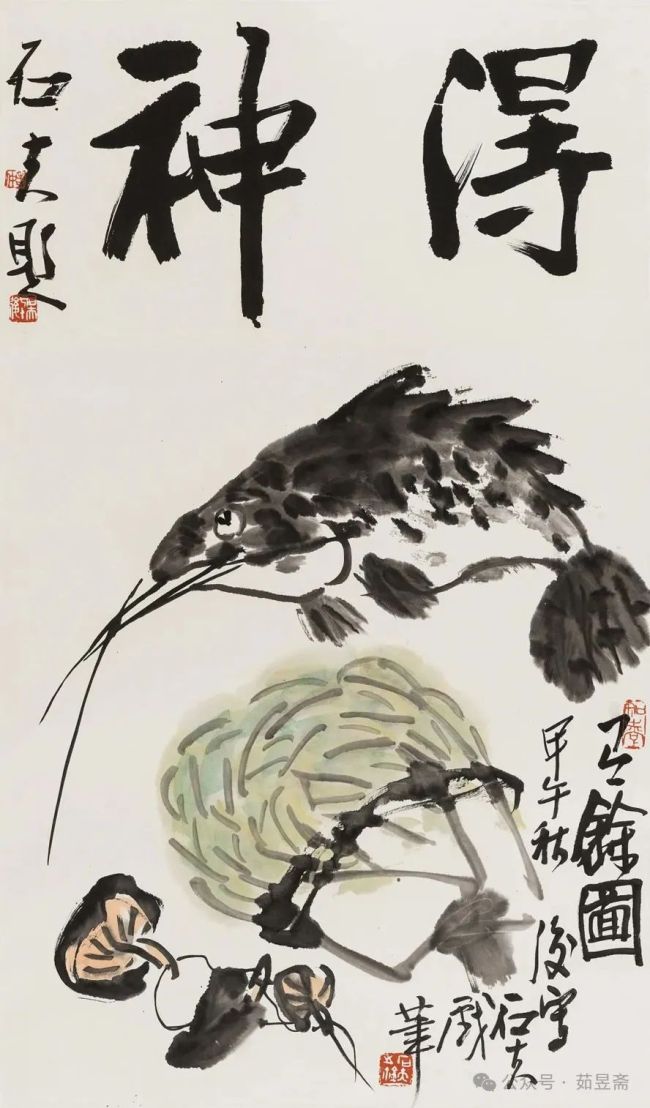 得神
石夫題
餘圖
甲午秋
寫
石夫
戲
筆
公众号 · 茹昱斋